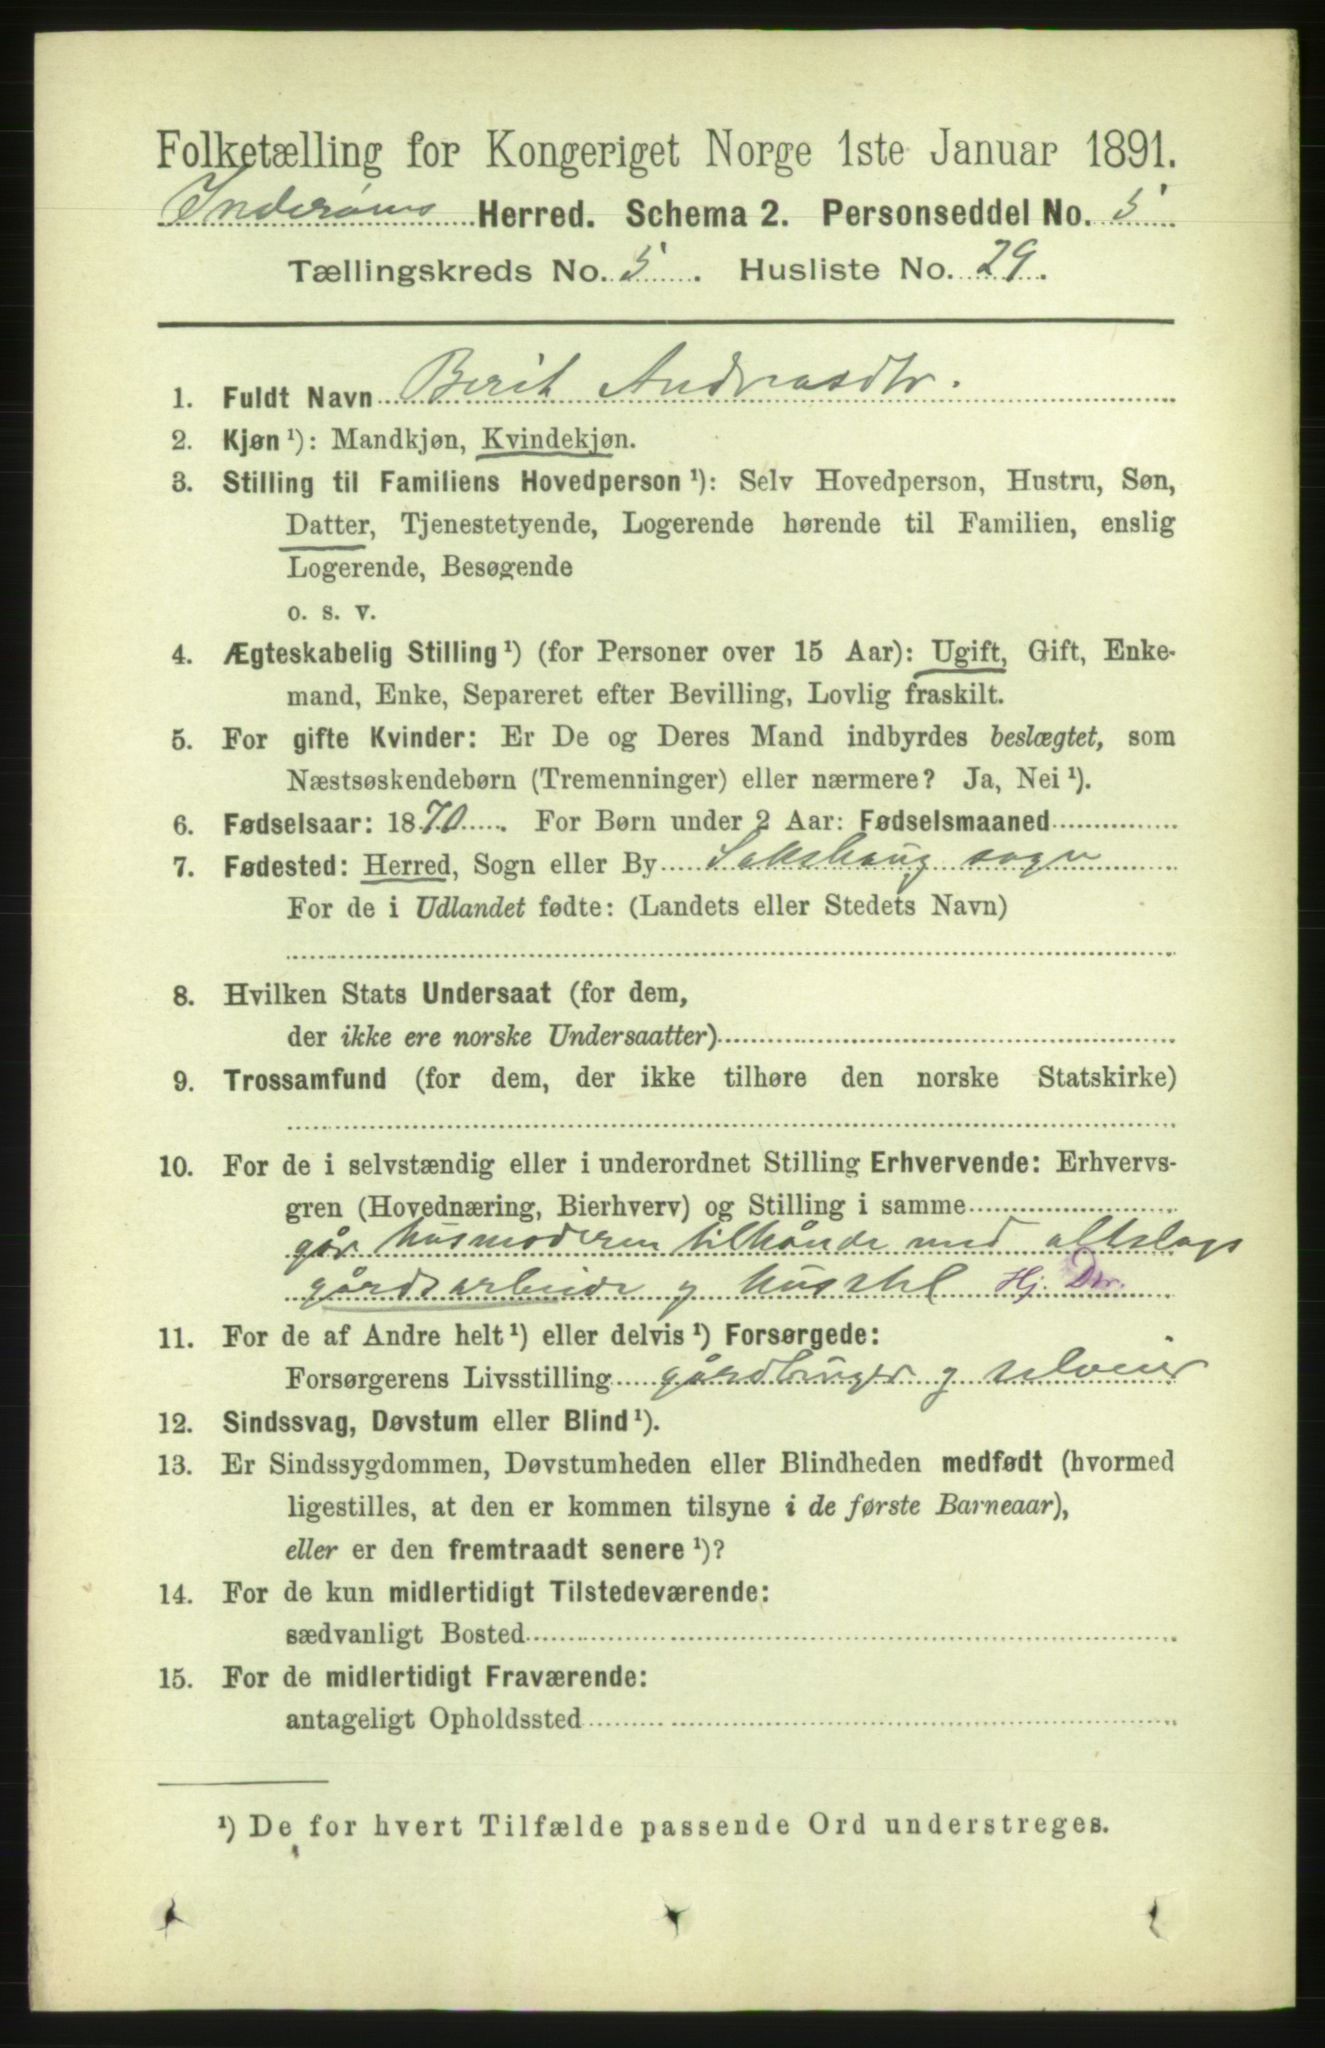 Folketælling for Kongeriget Norge 1ste Januar 1891.
Inderøens Herred. Schema 2. Personseddel No. 5
Tællingskreds No. 5. Husliste No. 29.
1. Fuldt Navn Berit Andreasdtr.
2. Kjøn ¹): Mandkjøn, Kvindekjøn.
3. Stilling til Familiens Hovedperson ¹): Selv Hovedperson, Hustru, Søn,
Datter, Tjenestetyende, Logerende hørende til Familien, enslig
Logerende, Besøgende
o. s. v.
4. Ægteskabelig Stilling ¹) (for Personer over 15 Aar): Ugift, Gift, Enke-
mand, Enke, Separeret efter Bevilling, Lovlig fraskilt.
5. For gifte Kvinder: Er De og Deres Mand indbyrdes beslægtet, som
Næstsøskendebørn (Tremenninger) eller nærmere? Ja, Nei ¹).
6. Fødselsaar: 1870. For Børn under 2 Aar: Fødselsmaaned
7. Fødested: Herred, Sogn eller By Sakshaug sogn
For de i Udlandet fødte: (Landets eller Stedets Navn)
8. Hvilken Stats Undersaat (for dem,
der ikke ere norske Undersaatter)
9. Trossamfund (for dem, der ikke tilhøre den norske Statskirke)
10. For de i selvstændig eller i underordnet Stilling Erhvervende: Erhvervs-
gren (Hovednæring, Bierhverv) og Stilling i samme
går husmoderen tilhånde med altslags
gårdsarbeide og husstel Hj. Dtr.
11. For de af Andre helt ¹) eller delvis ¹) Forsørgede:
Forsørgerens Livsstilling gårdbruger og selveier
12. Sindssvag, Døvstum eller Blind ¹).
13. Er Sindssygdommen, Døvstumheden eller Blindheden medfødt (hvormed
ligestilles, at den er kommen tilsyne i de første Barneaar),
eller er den fremtraadt senere ¹)?
14. For de kun midlertidigt Tilstedeværende:
sædvanligt Bosted
15. For de midlertidigt Fraværende:
antageligt Opholdssted
¹) De for hvert Tilfælde passende Ord understreges.